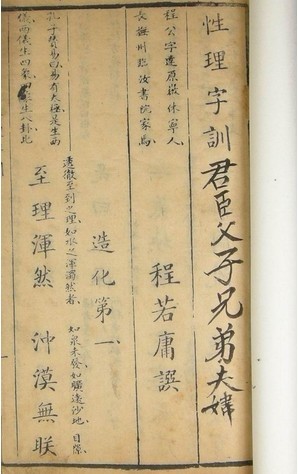 性理字訓 君臣父子兄弟夫婦
程公字達原嶔休寧人
長撫州臨汝書院家焉
程若庸譔
造化第一
至理渾然 沖漠無眹
透徹至到之理如水之渾濁然者
如泉未發如曠遠沙地目際
孔子贊易曰易有太極是生兩
儀兩儀生四象四象生八卦此